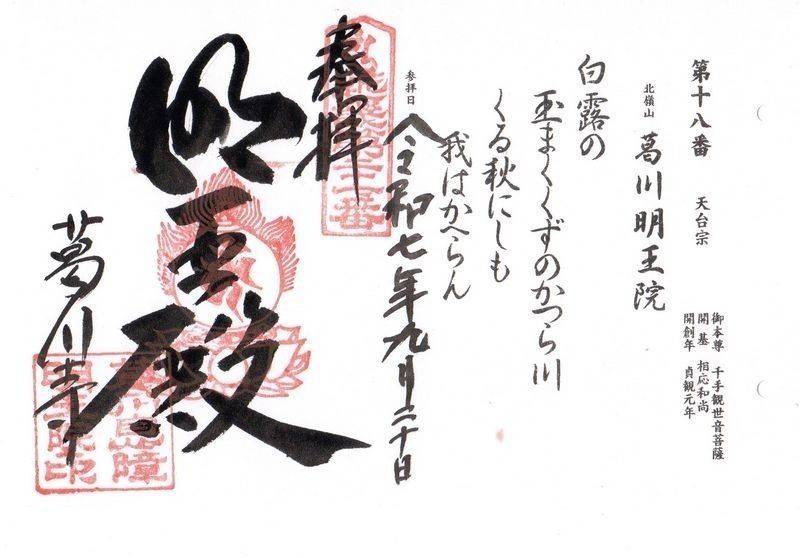 第十八番 天台宗
北嶺山 葛川明王院
御本尊 千手観世音菩薩
開基 相応和尚
開創年 貞観元年
白露の
玉まくくずのかつら川
くる秋にしも
我はかへらん
参拝日 令和七年九月二十日
奉拝
明王殿
葛川寺
葛川息障
明王院印